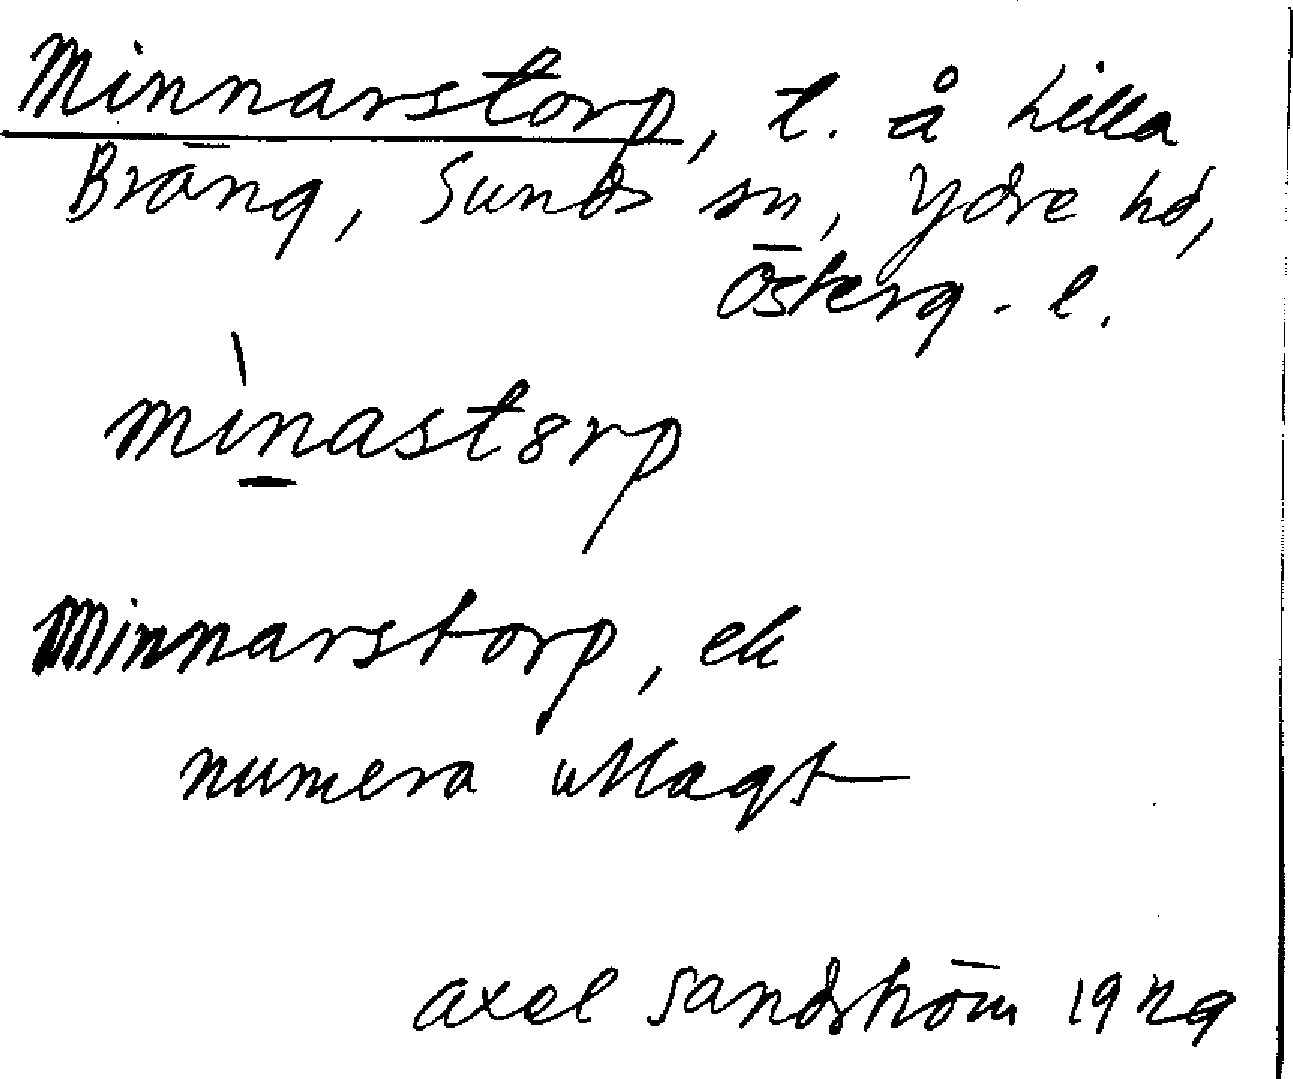 Minnarstorp, t. å Lilla
Bräng, Sunds sn, Ydre hd,
Österg. l.
mìnastørp
Minnarstorp, ek
numera utlagt
Axel Sandström 1929